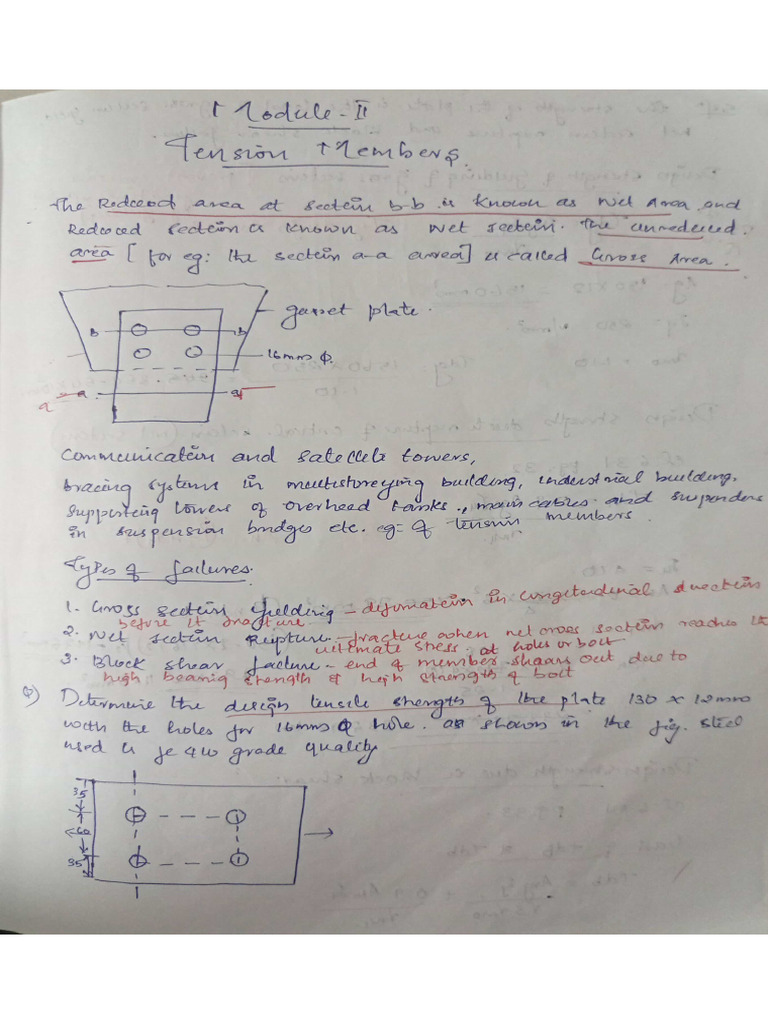 Module - II
Tension Members.
The Reduced area at section b-b is known as Net Area and
Reduced section is known as Net section. The unreduced
area [for eg: the section a-a area] is called Gross Area.
gusset plate.
b b
16mm ϕ.
a a a
communication and satellite towers,
bracing systems in multistoreying building, industrial building,
supporting towers of overhead tanks, main cables and suspenders
in suspension bridges etc. eg= of tension members.
Types of failures.
1. Gross section yielding - deformation in longitudinal direction
before it fracture
2. Net section Rupture - fracture when net cross section reaches its
ultimate stress. at holes or bolt
3. Block shear failure - end of member shears out due to
high bearing strength & high strength of bolt
Q) Determine the design tensile strength of the plate 130 x 12mm
with the holes for 16mm ϕ hole. as shown in the fig. steel
used is fe 410 grade quality
35
60
35